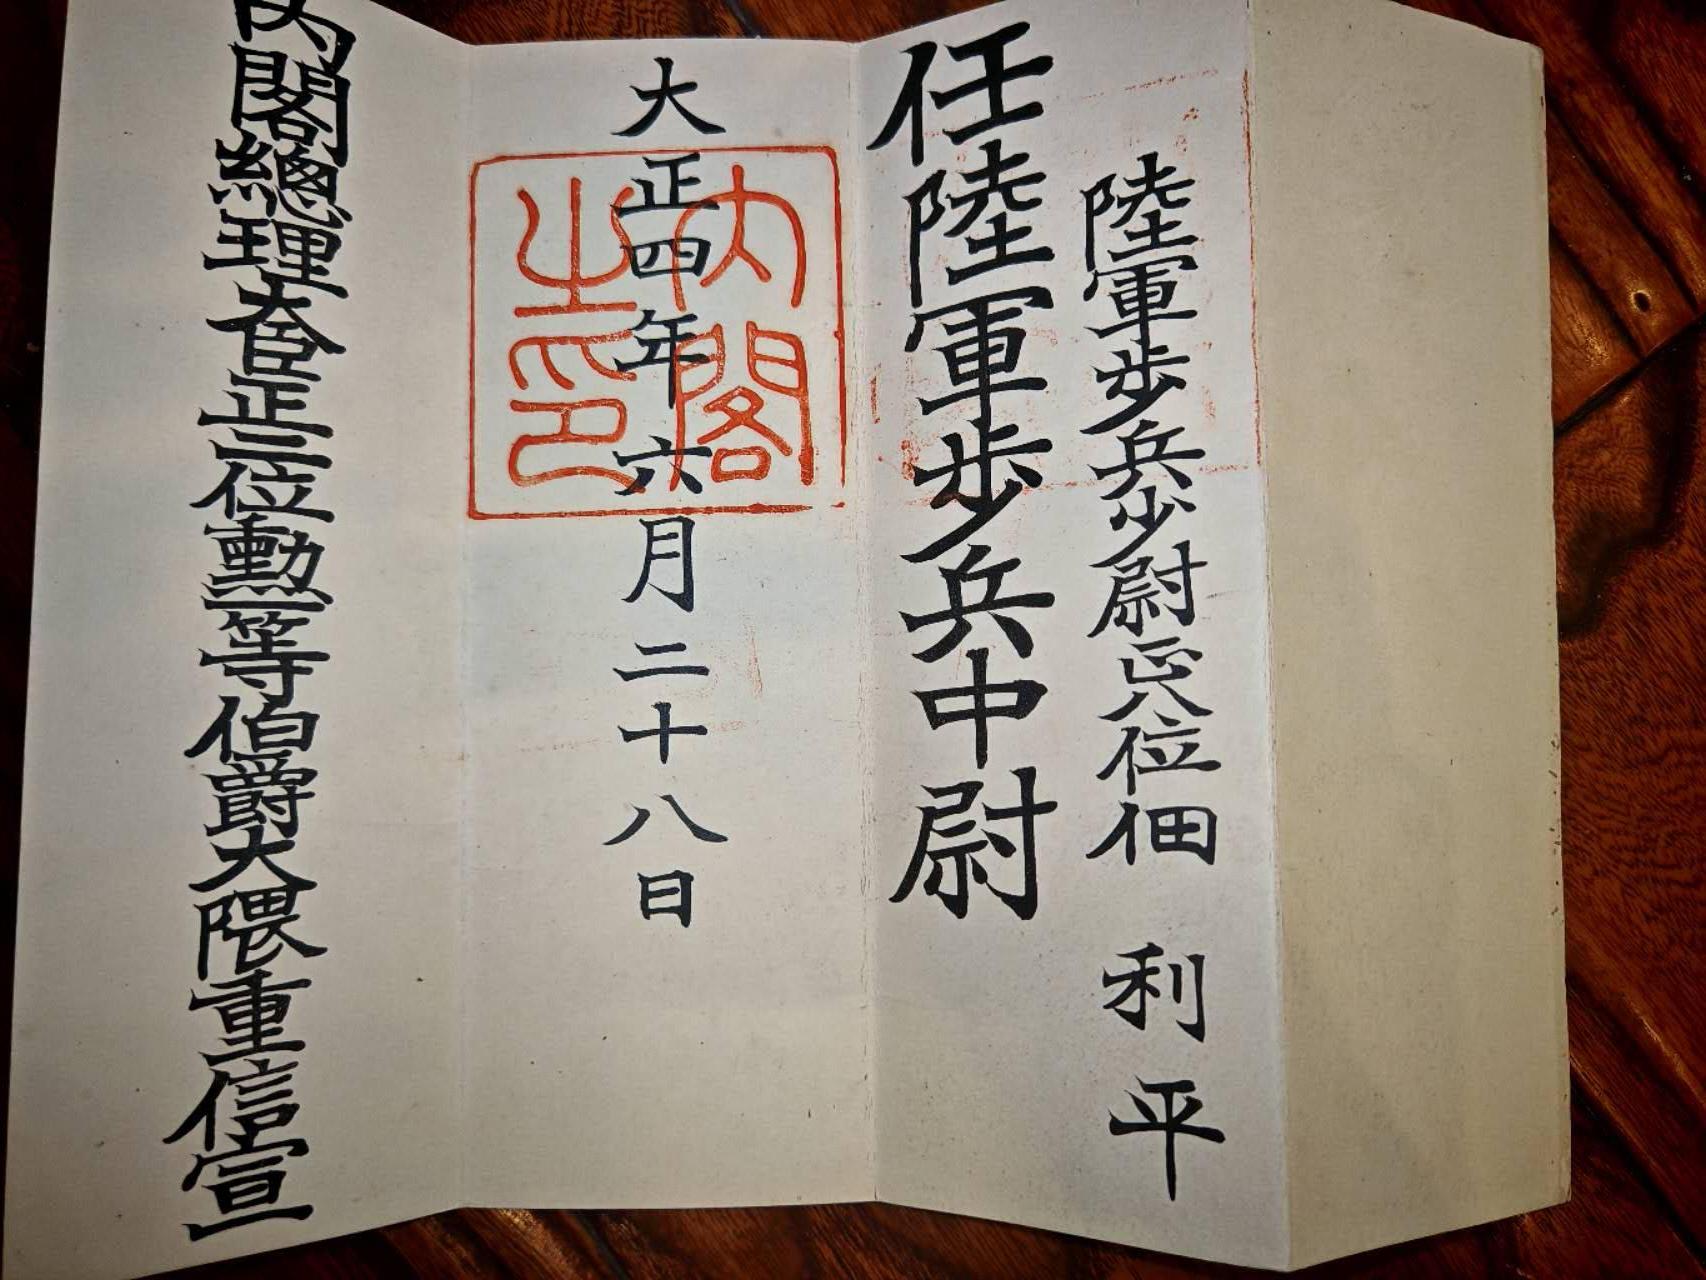 陸軍歩兵少尉正八位佃利平
任陸軍歩兵中尉
大正四年六月二十八日
内閣之印
内閣總理大臣正二位勲一等伯爵大隈重信宣